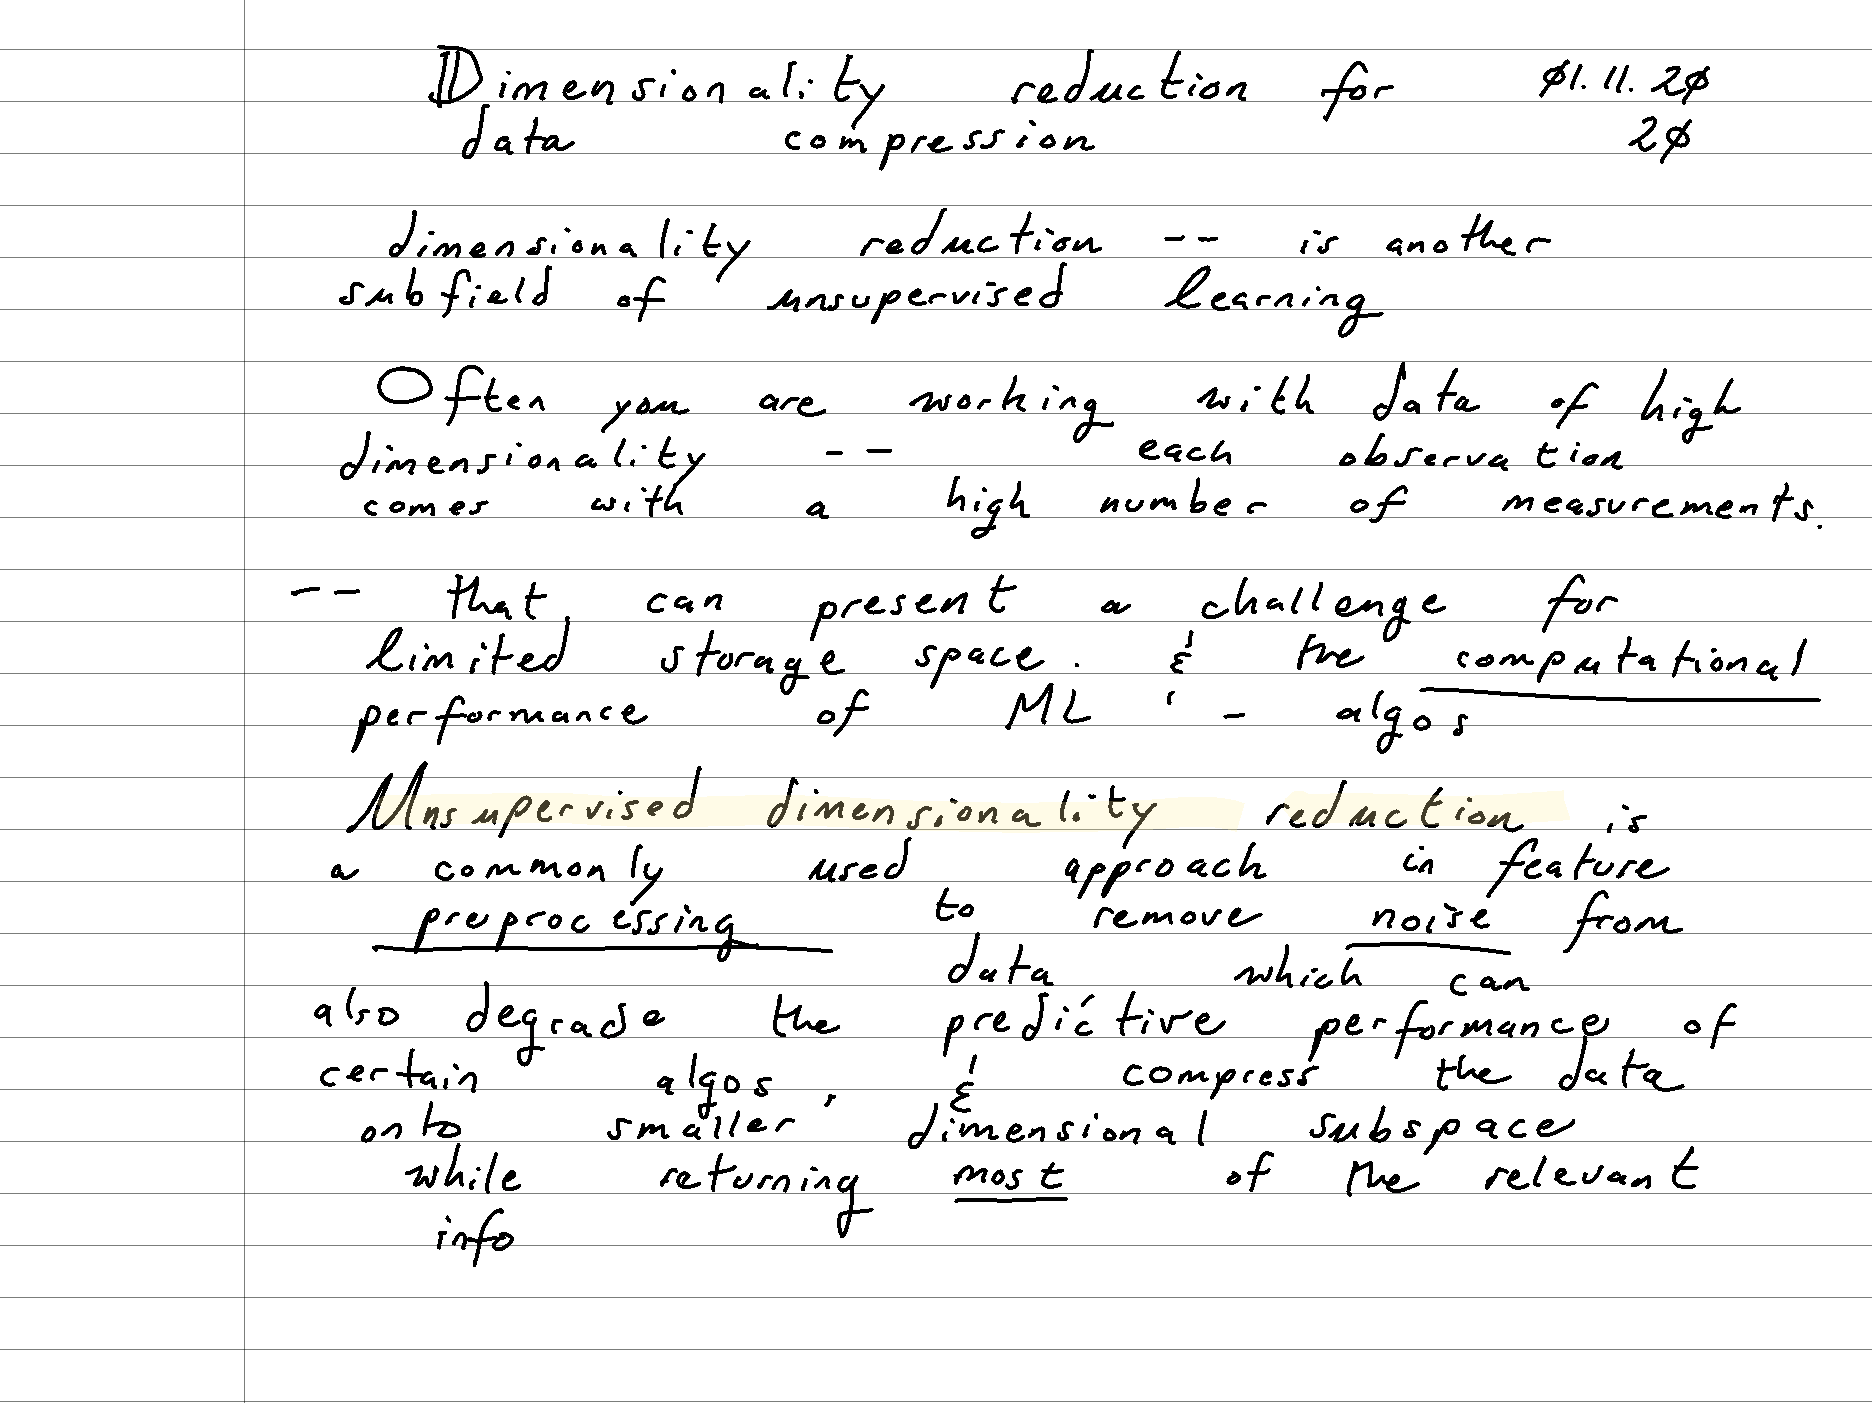 Dimensionality reduction for ø1.11.2ø
data compression 2ø
dimensionality reduction -- is another
subfield of unsupervised learning
Often you are working with data of high
dimensionality -- each observation
comes with a high number of measurements.
-- that can present a challenge for
limited storage space. & the computational
performance of ML - algos
Unsupervised dimensionality reduction is
a commonly used approach in feature
preprocessing to remove noise from
data which can
also degrade the predictive performance of
certain algos, & compress the data
onto smaller dimensional subspace
while returning most of the relevant
info